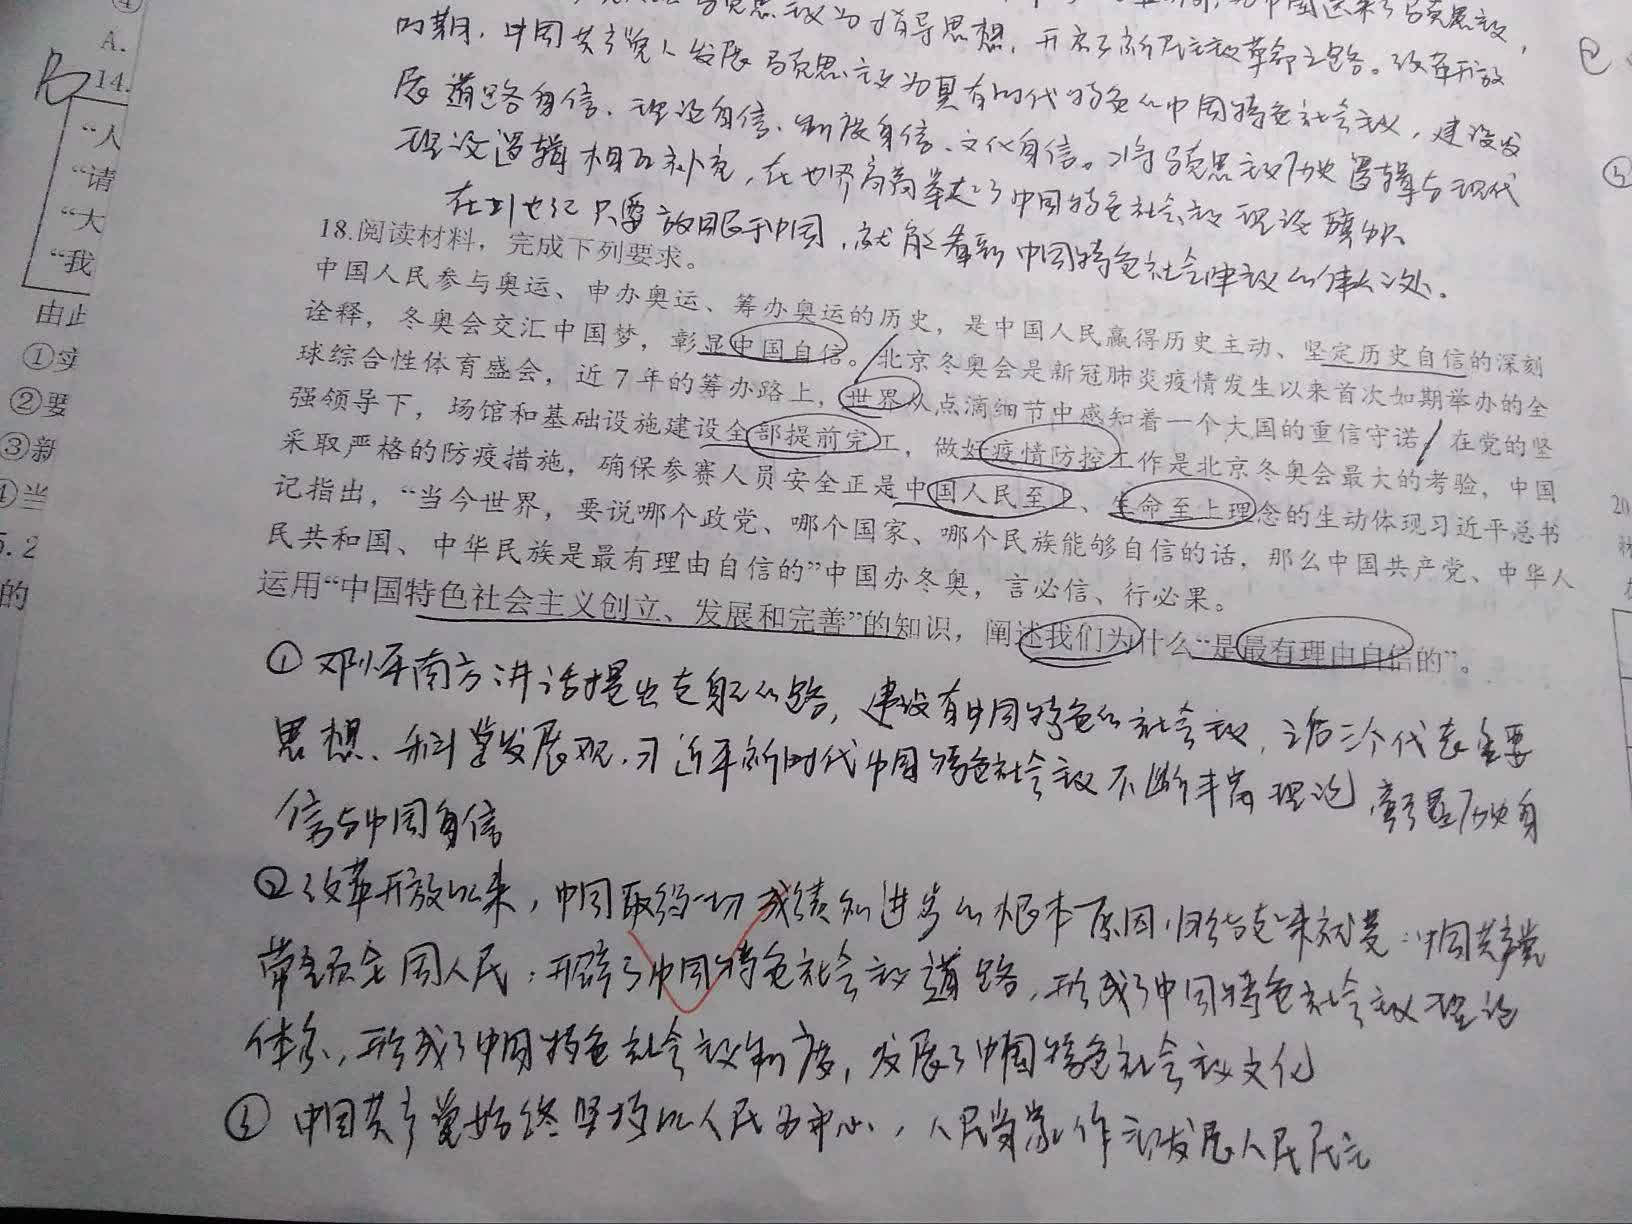 ④
A.
14.
“人
“请
“大
“我
由止
①实
②要
③新
④当
5.2
的
义为指导思想，开辟了新民主主义革命之路。改革开放
时期，中国共产党人发展马克思主义为具有时代特色的中国特色社会主义，建设发
展道路自信、理论自信、制度自信、文化自信。将马克思主义历史逻辑与现代
理论逻辑相互补充，在世界高高举起了中国特色社会主义理论旗帜
在21世纪只要放眼于中国，就能看到中国特色社会主义的伟大之处。
18.阅读材料，完成下列要求。
中国人民参与奥运、申办奥运、筹办奥运的历史，是中国人民赢得历史主动、坚定历史自信的深刻
诠释，冬奥会交汇中国梦，彰显中国自信。北京冬奥会是新冠肺炎疫情发生以来首次如期举办的全
球综合性体育盛会，近7年的筹办路上，世界从点滴细节中感知着一个大国的重信守诺。在党的坚
强领导下，场馆和基础设施建设全部提前完工，做好疫情防控工作是北京冬奥会最大的考验，中国
采取严格的防疫措施，确保参赛人员安全正是中国人民至上、生命至上理念的生动体现习近平总书
记指出，“当今世界，要说哪个政党、哪个国家、哪个民族能够自信的话，那么中国共产党、中华人
民共和国、中华民族是最有理由自信的”中国办冬奥，言必信、行必果。
运用“中国特色社会主义创立、发展和完善”的知识，阐述我们为什么“是最有理由自信的”。
①邓小平南方讲话提出走自己的路，建设有中国特色的社会主义，之后三个代表重要
思想、科学发展观、习近平新时代中国特色社会主义不断丰富理论，彰显历史自
信与中国自信
②改革开放以来，中国取得一切成绩和进步的根本原因，归结起来就是：中国共产党
带领全国人民：开辟了中国特色社会主义道路，形成了中国特色社会主义理论
体系，形成了中国特色社会主义制度，发展了中国特色社会主义文化
③中国共产党始终坚持以人民为中心，人民当家作主发展人民民主